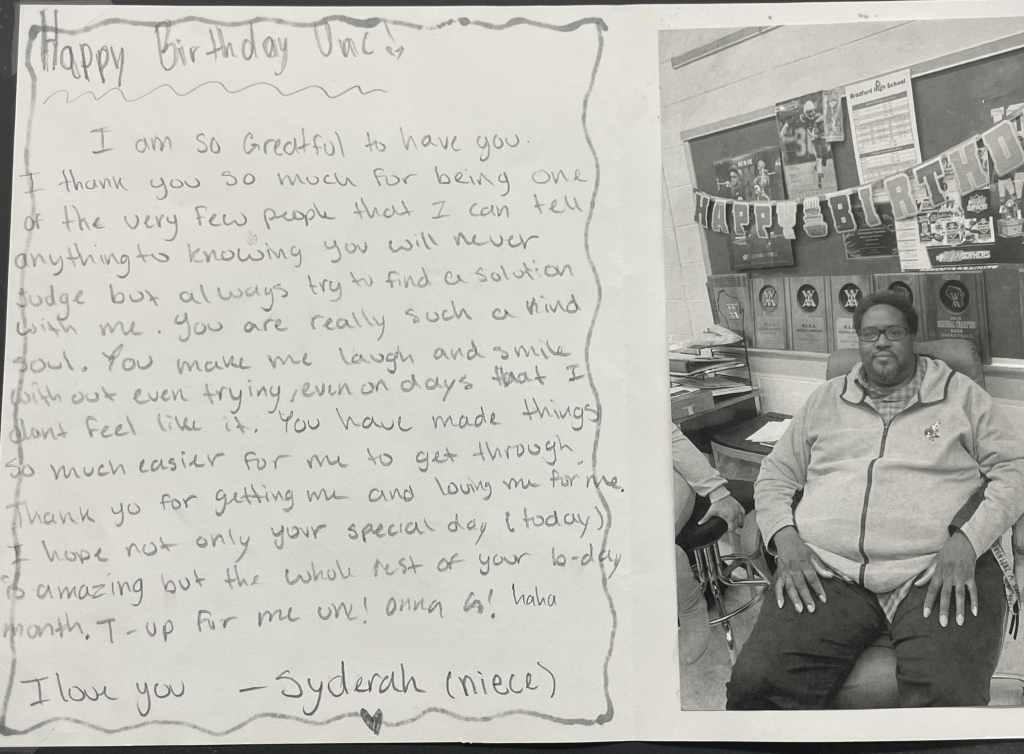 Happy Birthday Unc!
I am so Greatful to have you.
I thank you so much for being one
of the very few people that I can tell
anything to knowing you will never
judge but always try to find a solution
with me. You are really such a kind
soul. You make me laugh and smile
with out even trying, even on days that I
dont feel like it. You have made things
so much easier for me to get through.
Thank yo for getting me and loving me for me.
I hope not only your special day (today)
is amazing but the whole rest of your b-day
month. T-up for me unc! onna G! haha
I love you - Syderah (niece)
Bradford High School
36
HAPPY BIRTHD
GOPHERS
REGIONAL CHAMPION